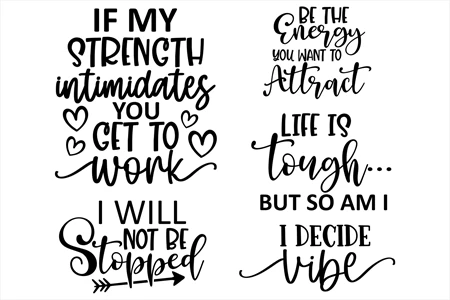 IF MY
STRENGTH
intimidates
YOU
GET TO
work
I WILL
NOT BE
Stopped
BE THE
Energy
YOU WANT TO
Attract
LIFE IS
tough...
BUT SO AM I
I DECIDE
vibe